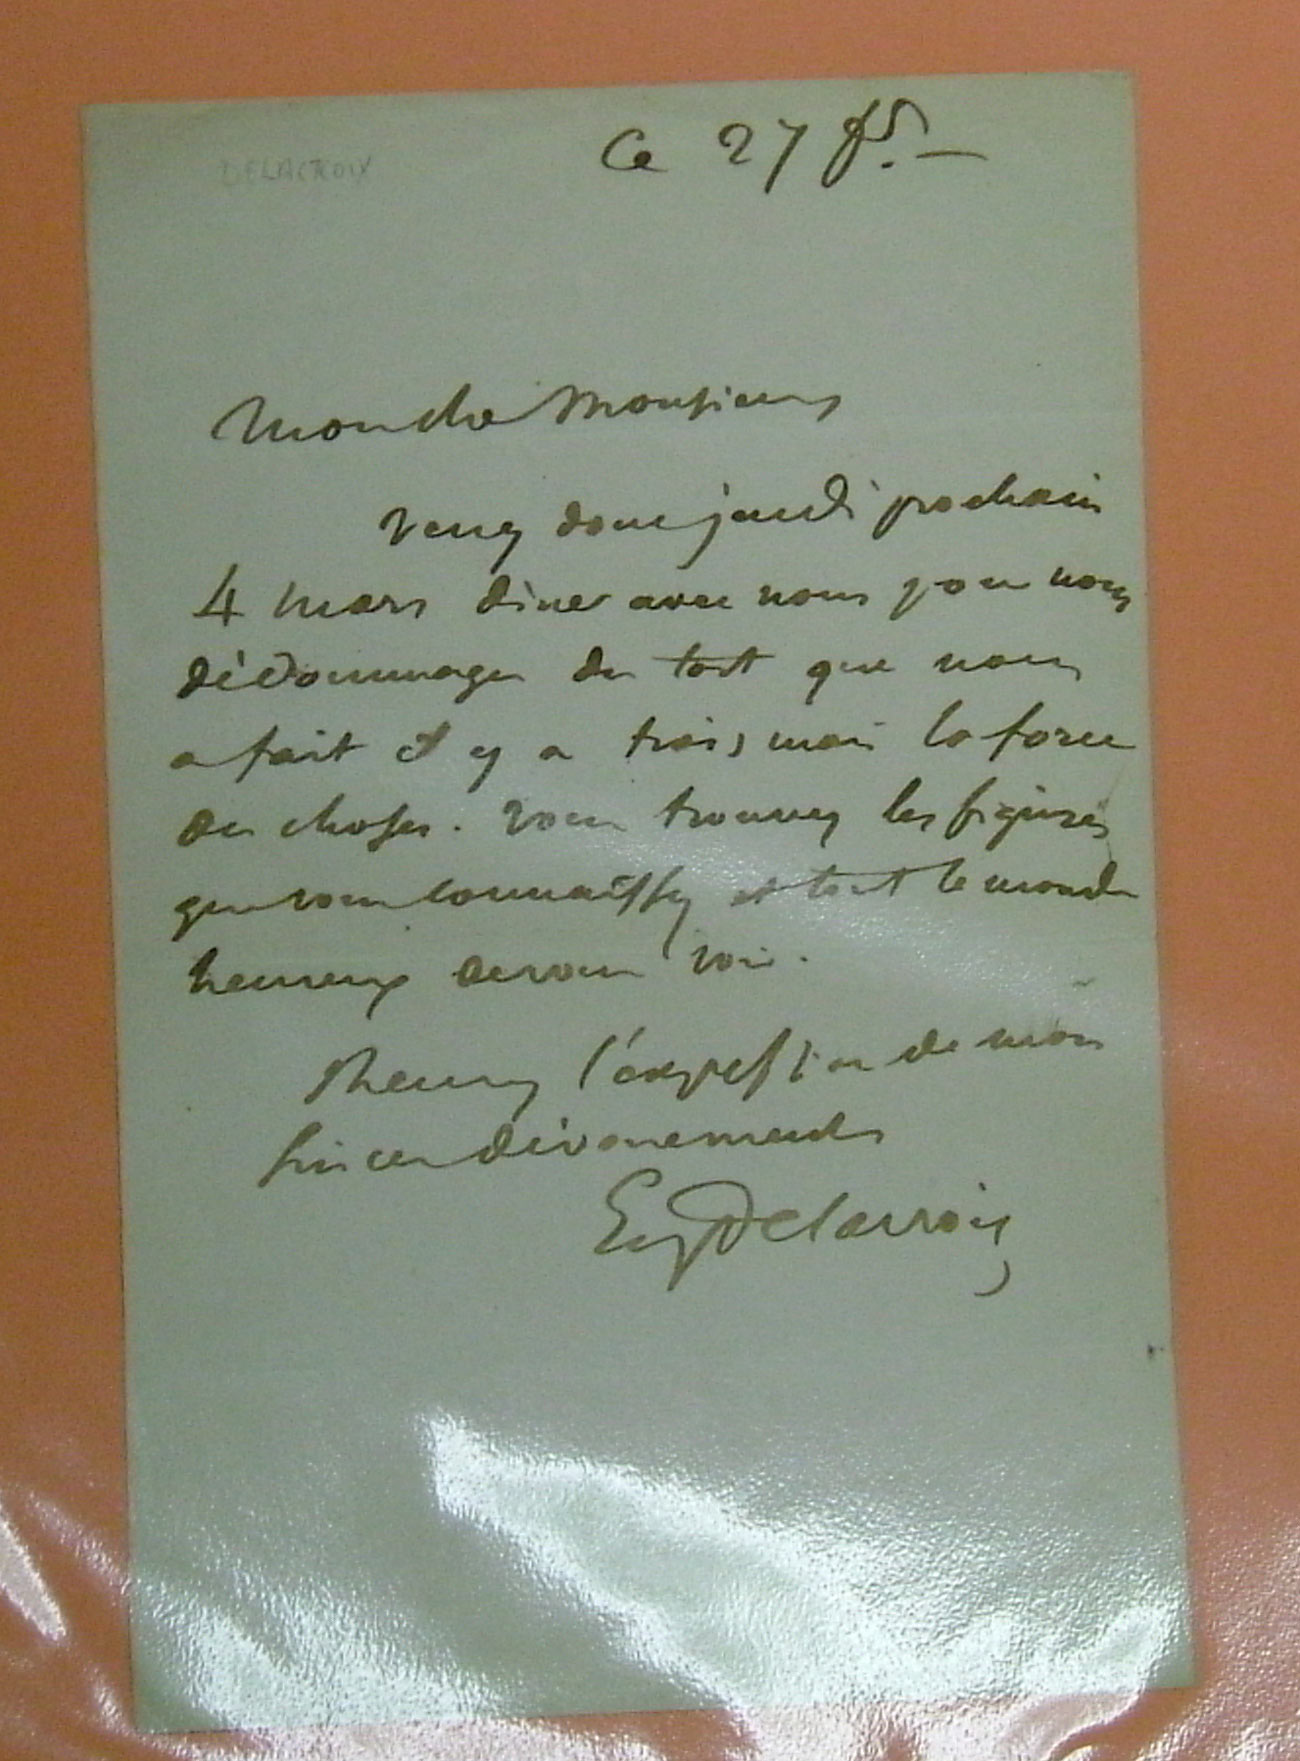 DELACROIX
Ce 27 fr. —
Mon cher Monsieur
Venez donc jeudi prochain
4 mars diner avec nous pour nous
dédommager du tort que nous
a fait il y a trois mois la force
des choses. Vous trouverez les figures
que vous connaissez et tout le monde
heureux de vous voir.
Recevez l'expression de mon
sincere dévouement
Eug Delacroix